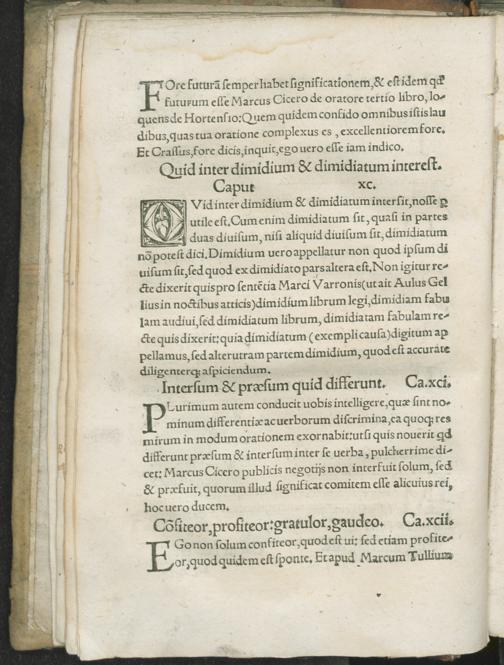 FOre futurã semper habet significationem, & est idem qđ
futurum esse Marcus Cicero de oratore tertio libro, lo-
quens de Hortensio: Quem quidem confido omnibus istis lau
dibus, quas tua oratione complexus es, excellentiorem fore.
Et Crassus, fore dicis, inquit, ego uero esse iam indico.
Quid inter dimidium & dimidiatum interest.
Caput xc.
QVid inter dimidium & dimidiatum intersit, nosse ꝑ
utile est. Cum enim dimidiatum sit, quasi in partes
duas diuisum, nisi aliquid diuisum sit, dimidiatum
nõ potest dici. Dimidium uero appellatur non quod ipsum di
uisum sit, sed quod ex dimidiato pars altera est. Non igitur re-
cte dixerit quis pro sentẽtia Marci Varronis (ut ait Aulus Gel
lius in noctibus atticis) dimidium librum legi, dimidiam fabu
lam audiui, sed dimidiatum librum, dimidiatam fabulam re-
cte quis dixerit: quia dimidiatum (exempli causa) digitum ap
pellamus, sed alterutram partem dimidium, quod est accurate
diligenterq; aspiciendum.
Intersum & præsum quid differunt. Ca.xci.
PLurimum autem conducit uobis intelligere, quæ sint no-
minum differentiæ ac uerborum discrimina, ea quoq; res
mirum in modum orationem exornabit: utsi quis nouerit qđ
differunt præsum & intersum inter se uerba, pulcherrime di-
cet: Marcus Cicero publicis negotijs non interfuit solum, sed
& præfuit, quorum illud significat comitem esse alicuius rei,
hoc uero ducem.
Cõfiteor, profiteor: gratulor, gaudeo. Ca.xcii.
EGo non solum confiteor, quod est ui: sed etiam profite-
or, quod quidem est sponte. Et apud Marcum Tullium